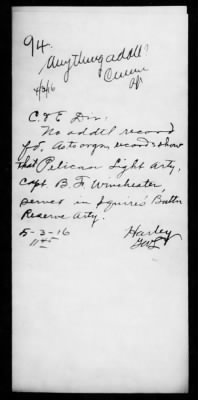 94.
Anything addl?
4/3/16
C & E Div.
No addtl record
fd. As to orgn, records show
that Pelican Light Arty,
Capt. B. F. Winchester,
served in Squires' Battn
Reserve Arty.
5-3-16 Harley